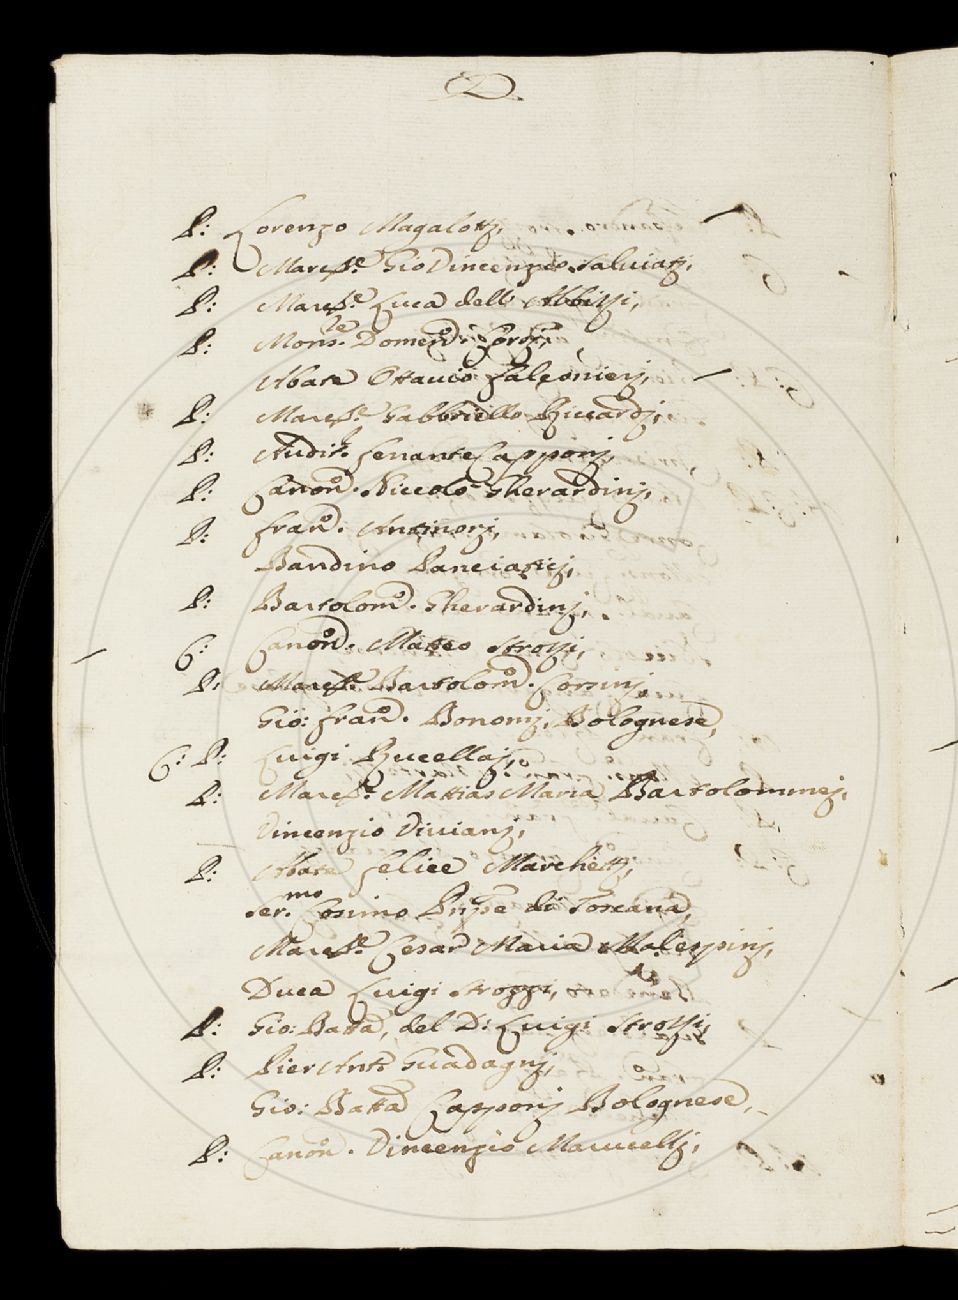 P: Lorenzo Magalottj,
P: March.e Gio Vincenzio Salviatj,
P: March.e Luca dell' Albizzj,
P: Mons.re Domen.o
Abate Ottavio Falconierj,
P: March.e Gabbriello Riccardj,
P: Audit.r Ferrante Capponj,
P: Canon.o Niccolò Gherardinj,
P: Fran.o Antinorj,
Bandino Panciaticj,
P: Bartolom.o Gherardinj,
C: Canon.o Matteo Strozzj,
P: March.e Bartolom.o Corsinj,
Gio: Fran.o Bonomj, Bolognese,
C: P: Luigi Rucellaj,
P: March.e Mattias Maria Bartolommej,
Vincenzio Vivianj,
P: Abate Felice Marchettj,
Ser.mo Cosimo Prīpe di Toscana,
March.e Cesar Maria Malespinj,
Duca Luigi Strozzi,
P: Gio: Batta, del D: Luigi Strozzi,
P: Pier Ant.o Guadagnj,
Gio: Batta Capponj Bolognese,
P: Canon.o Vincenzio Marucellj,